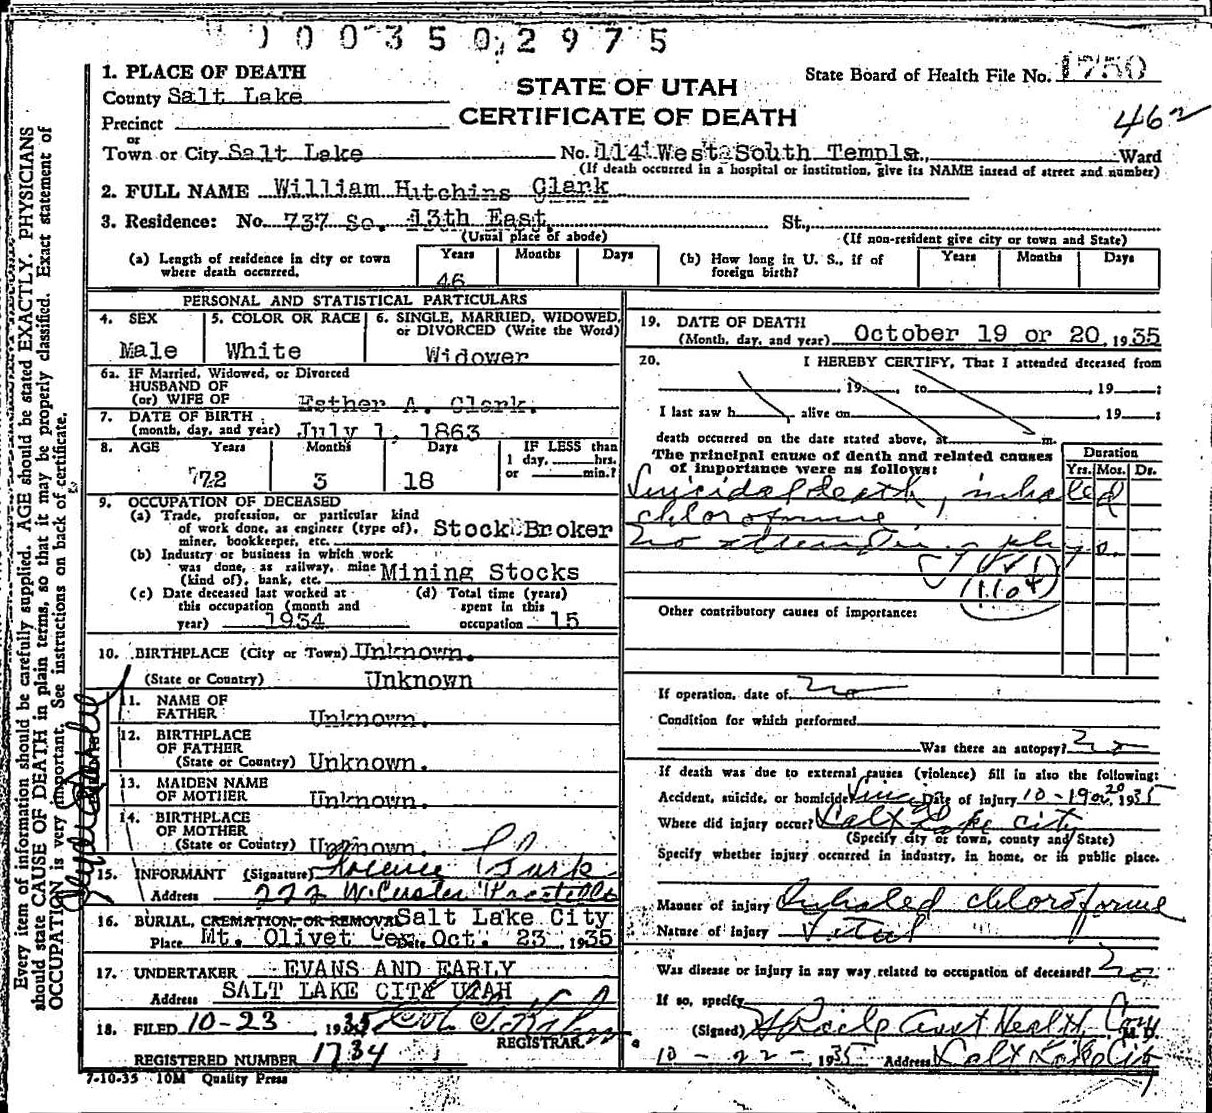 1003502975
1. PLACE OF DEATH
County Salt Lake
Precinct
or
Town or City Salt Lake
STATE OF UTAH
CERTIFICATE OF DEATH
State Board of Health File No. 1750
462
No. 114 West South Temple, Ward
(If death occurred in a hospital or institution, give its NAME instead of street and number)
2. FULL NAME William Hutchins Clark
3. Residence: No. 737 So. 13th East, St.,
(Usual place of abode) (If non-resident give city or town and State)
(a) Length of residence in city or town where death occurred. Years 46 Months Days
(b) How long in U. S., if of foreign birth? Years Months Days
PERSONAL AND STATISTICAL PARTICULARS
4. SEX Male
5. COLOR OR RACE White
6. SINGLE, MARRIED, WIDOWED, or DIVORCED (Write the Word) Widower
6a. IF Married, Widowed, or Divorced
HUSBAND OF
(or) WIFE OF Esther A. Clark.
7. DATE OF BIRTH
(month, day, and year) July 1, 1863
8. AGE Years Months Days IF LESS than
1 day, hrs.
or min.?
72 3 18
9. OCCUPATION OF DECEASED
(a) Trade, profession, or particular kind
of work done, as engineer (type of),
miner, bookkeeper, etc. Stock Broker
(b) Industry or business in which work
was done, as railway, mine
(kind of), bank, etc. Mining Stocks
(c) Date deceased last worked at
this occupation (month and
year) 1934
(d) Total time (years)
spent in this
occupation 15
10. BIRTHPLACE (City or Town) Unknown.
(State or Country) Unknown
11. NAME OF
FATHER Unknown.
12. BIRTHPLACE
OF FATHER
(State or Country) Unknown.
13. MAIDEN NAME
OF MOTHER Unknown.
14. BIRTHPLACE
OF MOTHER
(State or Country) Unknown.
15. INFORMANT (Signature) Florence Clark
Address 222 W. Custer Pocatello
16. BURIAL, CREMATION, OR REMOVAL Salt Lake City
Place Mt. Olivet Cem Date Oct. 23, 1935
17. UNDERTAKER EVANS AND EARLY
Address SALT LAKE CITY UTAH
18. FILED 10-23, 1935
REGISTRAR.
REGISTERED NUMBER 1734
7-10-35 10M Quality Press
19. DATE OF DEATH
(Month, day, and year) October 19 or 20, 1935
20. I HEREBY CERTIFY, That I attended deceased from
, 19 to , 19 ;
I last saw h , alive on , 19 ;
death occurred on the date stated above, at m.
The principal cause of death and related causes
of importance were as follows:
Duration
Yrs. Mos. Ds.
Suicidal death, inhaled
chloroforme
no attending phys.
Other contributory causes of importance:
If operation, date of no
Condition for which performed
Was there an autopsy? no
If death was due to external causes (violence) fill in also the following:
Accident, suicide, or homicide? Suici Date of injury 10-19 or 20, 1935
Where did injury occur? Salt Lake City
(Specify city or town, county and State)
Specify whether injury occurred in industry, in home, or in public place.
Manner of injury Inhaled chloroforme
Nature of injury Vital
Was disease or injury in any way related to occupation of deceased? no
If so, specify
(Signed) Asst Health Com M. D.
10-22-, 1935 Address Salt Lake City
Every item of information should be carefully supplied. AGE should be stated EXACTLY. PHYSICIANS
should state CAUSE OF DEATH in plain terms, so that it may be properly classified. Exact statement of
OCCUPATION is very important. See instructions on back of certificate.